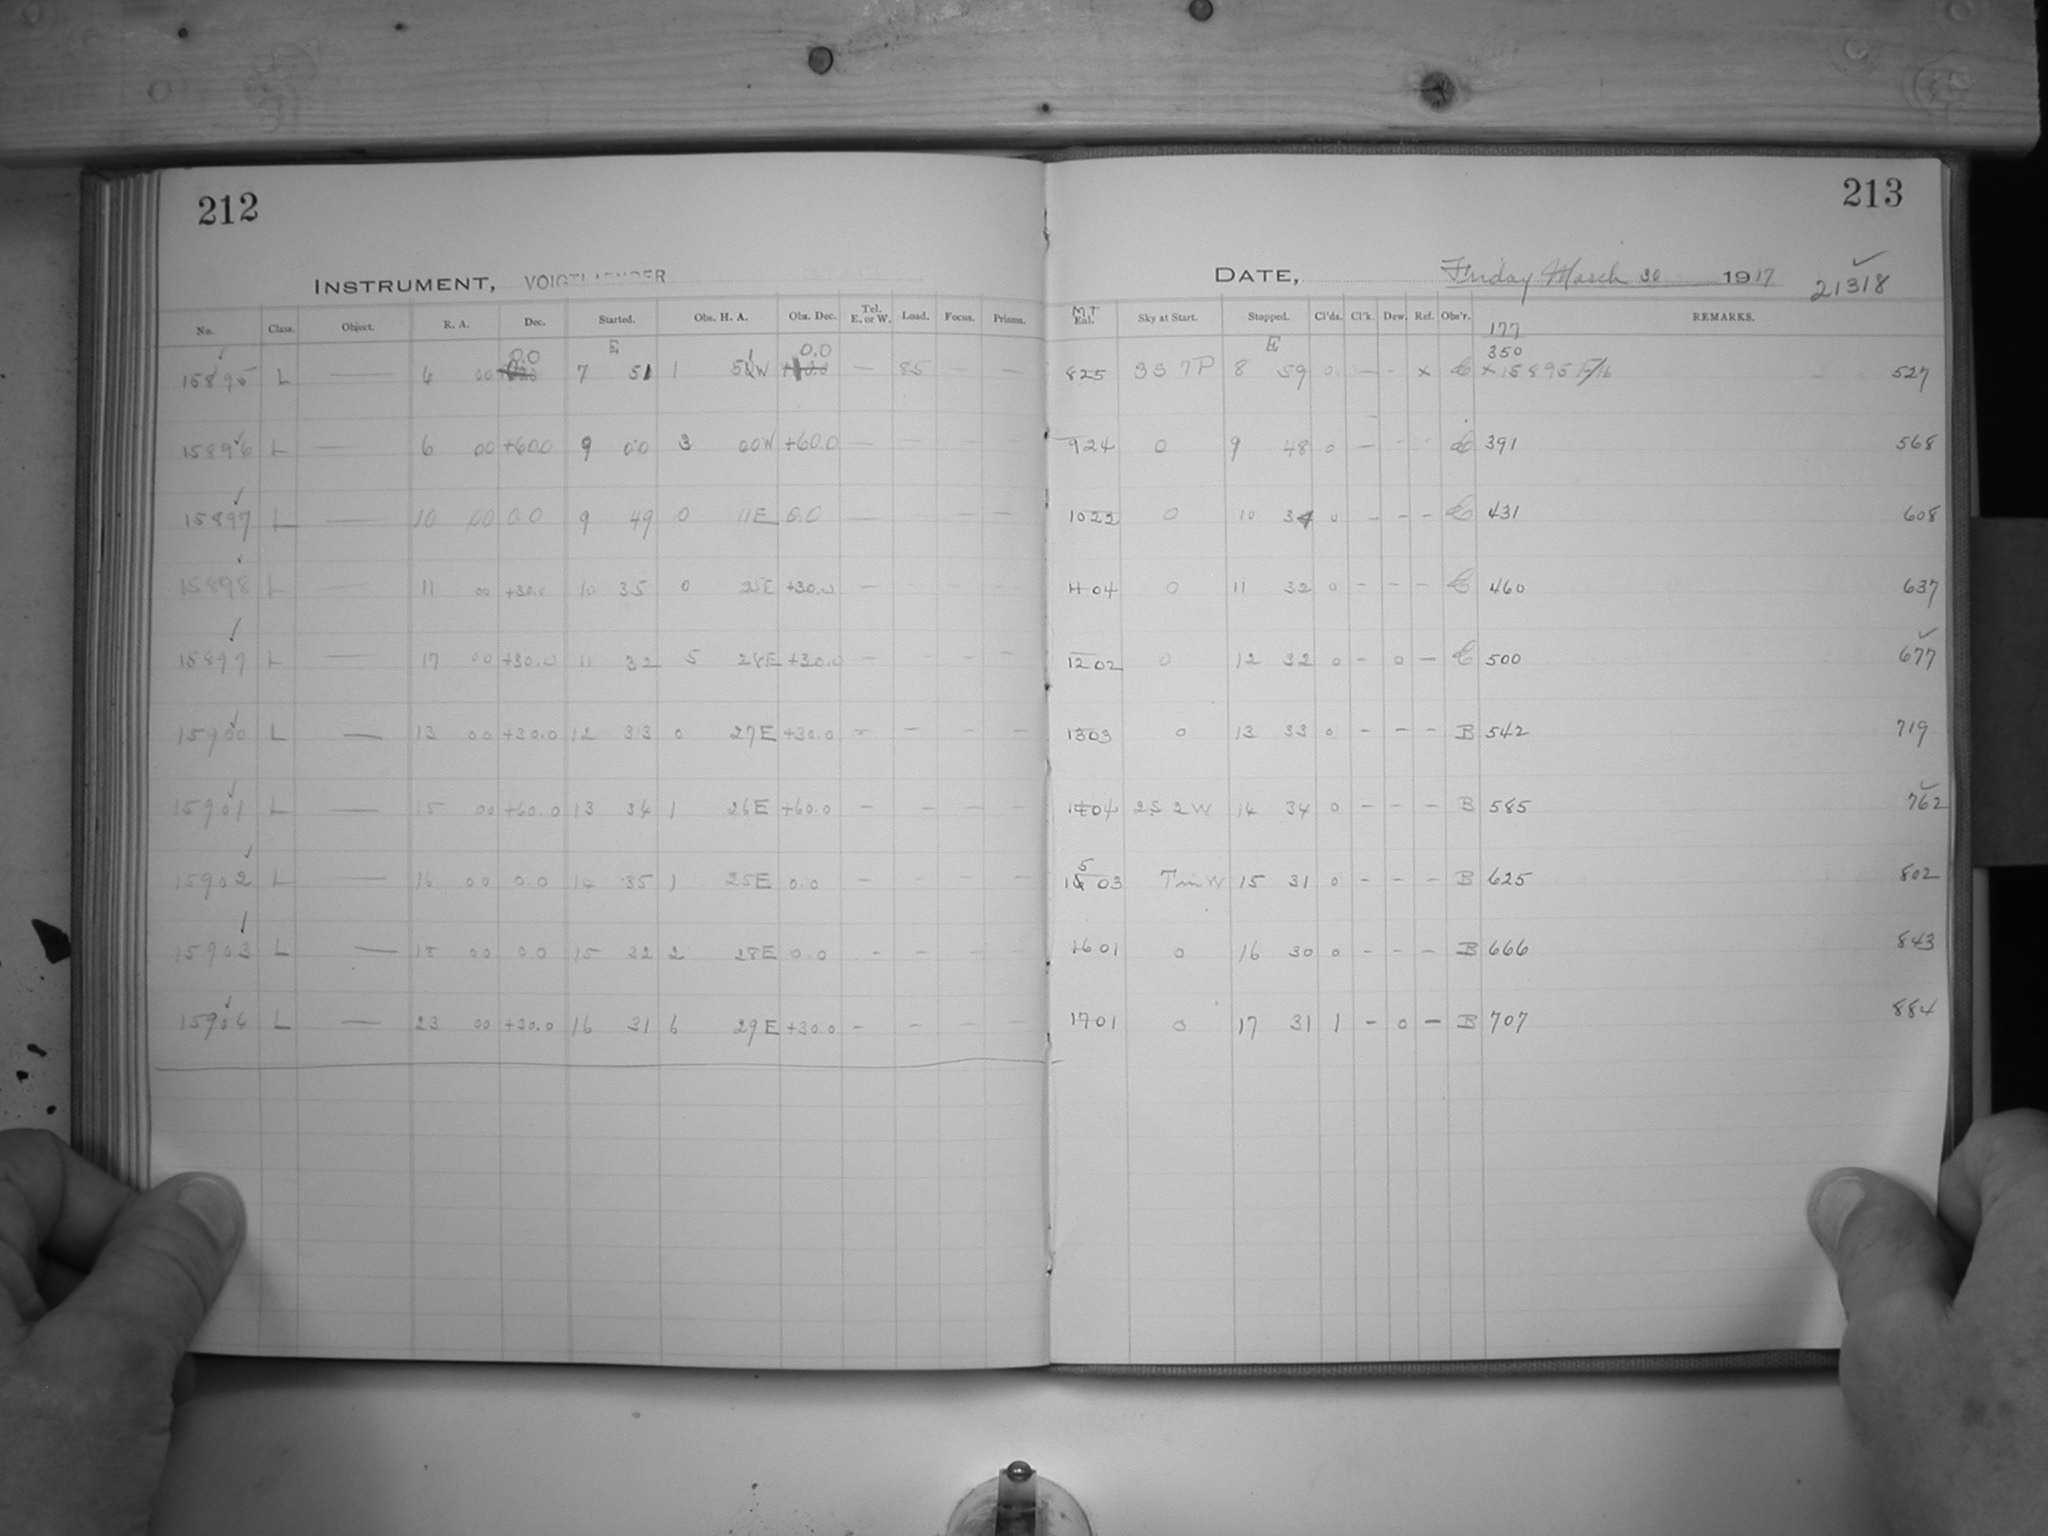 212
213
INSTRUMENT, VOIGTLAENDER
DATE, Friday March 30 1917 21318
No. Class. Object. R. A. Dec. Started. Obs. H. A. Obs. Dec. Tel. E. or W. Load. Focus. Prisms. MT Sky at Start. Stopped. Cl'ds. Cl'k. Dew. Ref. Obs'r. REMARKS.
0.0 E 0.0 E 177 350
15895 L — 6 00 7 51 1 51W — 85 — 825 3S 7P 8 59 0 — - x C x 15895 F/16 527
15896 L — 6 00 +60.0 9 00 3 00W +60.0 — 924 0 9 48 0 — - - C 391 568
15897 L — 10 00 0.0 9 49 0 11E 0.0 — — — 1022 0 10 34 0 - - - C 431 608
15898 L — 11 00 +30.0 10 35 0 25E +30.0 — 1104 0 11 32 0 - - - C 460 637
15899 L — 17 00 +30.0 11 32 5 28E +30.0 — - - - 1202 0 12 32 0 - 0 - C 500 677
15900 L — 13 00 +30.0 12 33 0 27E +30.0 - - - - 1303 0 13 33 0 - - - B 542 719
15901 L — 15 00 +60.0 13 34 1 26E +60.0 - - - - 1404 2S 2W 14 34 0 - - - B 585 762
15902 L — 16 00 0.0 14 35 1 25E 0.0 - - - - 1503 Tm W 15 31 0 - - - B 625 802
15903 L — 18 00 0.0 15 32 2 28E 0.0 - - - - 1601 0 16 30 0 - - - B 666 843
15904 L — 23 00 +30.0 16 31 6 29E +30.0 - - - - 1701 0 17 31 1 - 0 - B 707 884